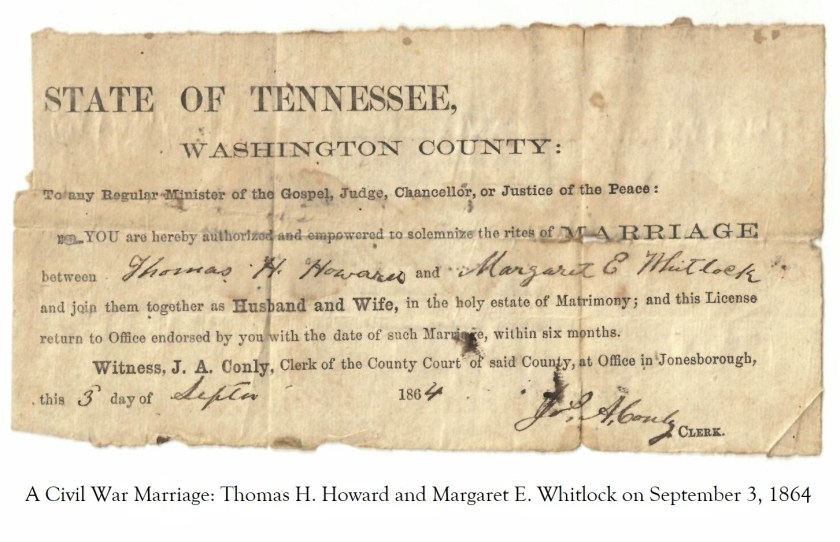 STATE OF TENNESSEE,
WASHINGTON COUNTY:
To any Regular Minister of the Gospel, Judge, Chancellor, or Justice of the Peace:
YOU are hereby authorized and empowered to solemnize the rites of MARRIAGE
between Thomas H. Howard and Margaret E Whitlock
and join them together as Husband and Wife, in the holy estate of Matrimony; and this License
return to Office endorsed by you with the date of such Marriage, within six months.
Witness, J. A. Conly, Clerk of the County Court of said County, at Office in Jonesborough,
this 3 day of Septr 1864
A. Conly CLERK.
A Civil War Marriage: Thomas H. Howard and Margaret E. Whitlock on September 3, 1864